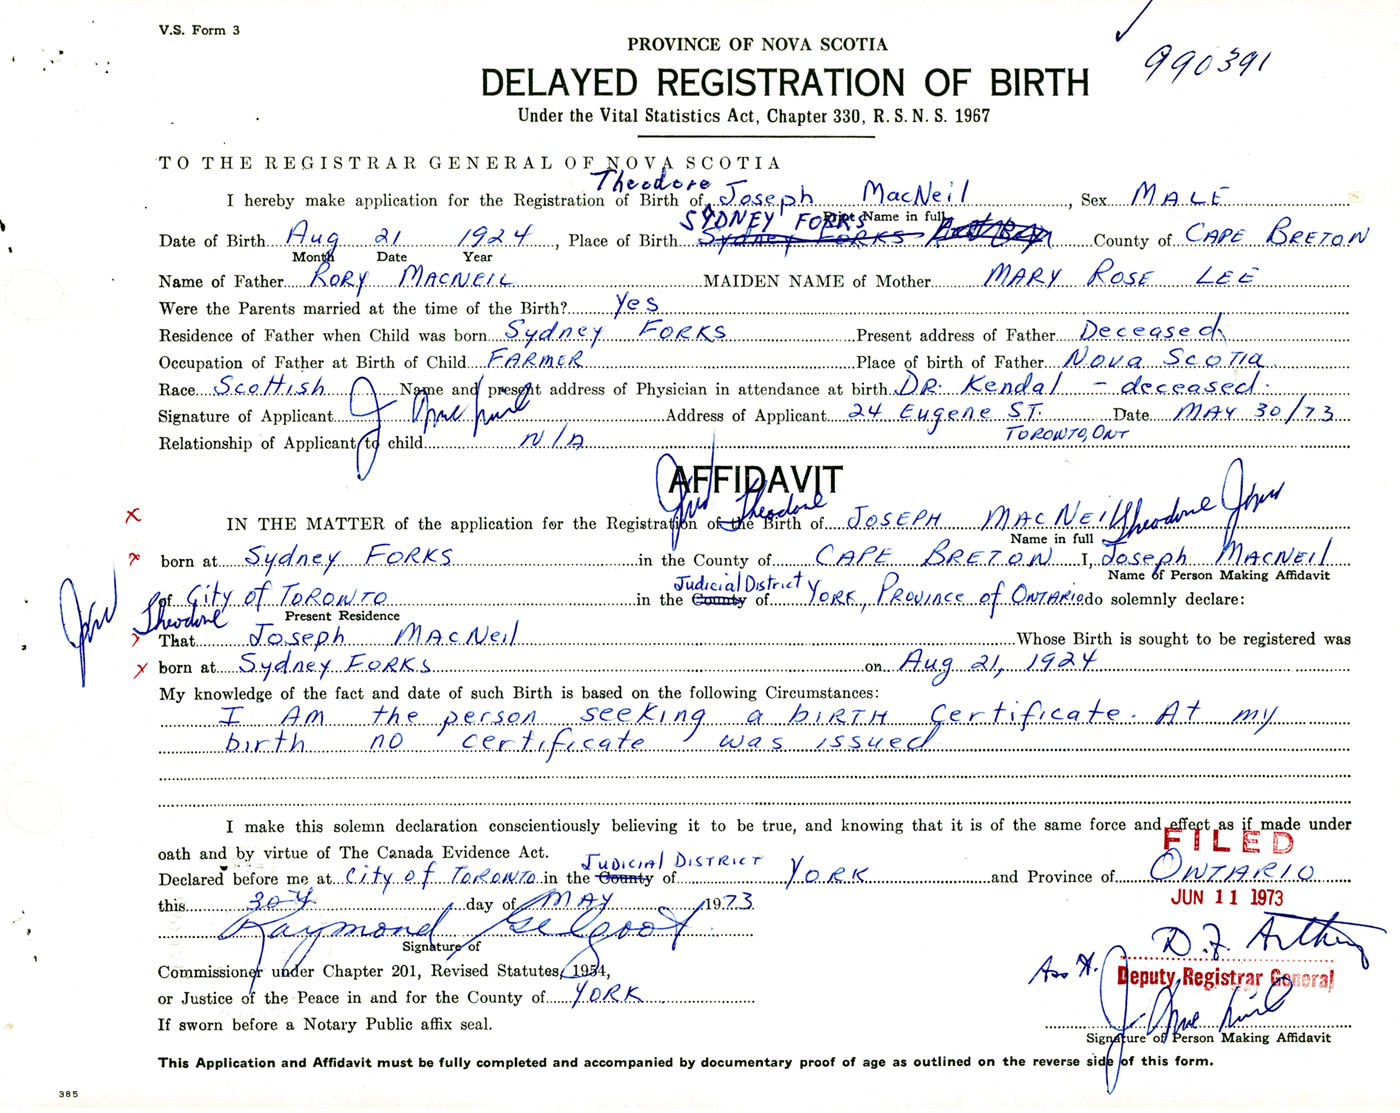 V.S. Form 3
990391
PROVINCE OF NOVA SCOTIA
DELAYED REGISTRATION OF BIRTH
Under the Vital Statistics Act, Chapter 330, R.S.N.S. 1967
TO THE REGISTRAR GENERAL OF NOVA SCOTIA
Theodore
I hereby make application for the Registration of Birth of Joseph MacNeil, Sex MALE
Print Name in full
SYDNEY FORKS
Date of Birth Aug 21 1924, Place of Birth Sydney FORKS County of CAPE BRETON
Month Date Year
Name of Father RORY MACNEIL MAIDEN NAME of Mother MARY ROSE LEE
Were the Parents married at the time of the Birth? Yes
Residence of Father when Child was born Sydney FORKS Present address of Father Deceased
Occupation of Father at Birth of Child FARMER Place of birth of Father NOVA SCOTIA
Race Scottish Name and present address of Physician in attendance at birth DR. Kendal - deceased.
Signature of Applicant Address of Applicant 24 Eugene ST. Date MAY 30/73
TORONTO, ONT
Relationship of Applicant to child N/A
AFFIDAVIT
Theodore
IN THE MATTER of the application for the Registration of the Birth of JOSEPH MACNEIL Theodore
Name in full
born at Sydney FORKS in the County of CAPE BRETON I, Joseph MACNEIL
Name of Person Making Affidavit
Judicial District
of City of TORONTO in the County of YORK, PROVINCE of ONTARIO do solemnly declare:
Present Residence
Theodore
That Joseph MACNeil Whose Birth is sought to be registered was
born at Sydney FORKS on Aug 21, 1924
My knowledge of the fact and date of such Birth is based on the following Circumstances:
I AM the person seeking a biRTH Certificate. At my
birth no certificate was issued
I make this solemn declaration conscientiously believing it to be true, and knowing that it is of the same force and effect as if made under
oath and by virtue of The Canada Evidence Act.
FILED
JUDICIAL DISTRICT
Declared before me at City of TORONTO in the County of YORK and Province of ONTARIO
this 30th day of MAY 1973
JUN 11 1973
Raymond
Signature of
D.F. Arthur
Ass't.
Deputy Registrar General
Commissioner under Chapter 201, Revised Statutes, 1954,
or Justice of the Peace in and for the County of YORK
If sworn before a Notary Public affix seal.
Signature of Person Making Affidavit
This Application and Affidavit must be fully completed and accompanied by documentary proof of age as outlined on the reverse side of this form.
385